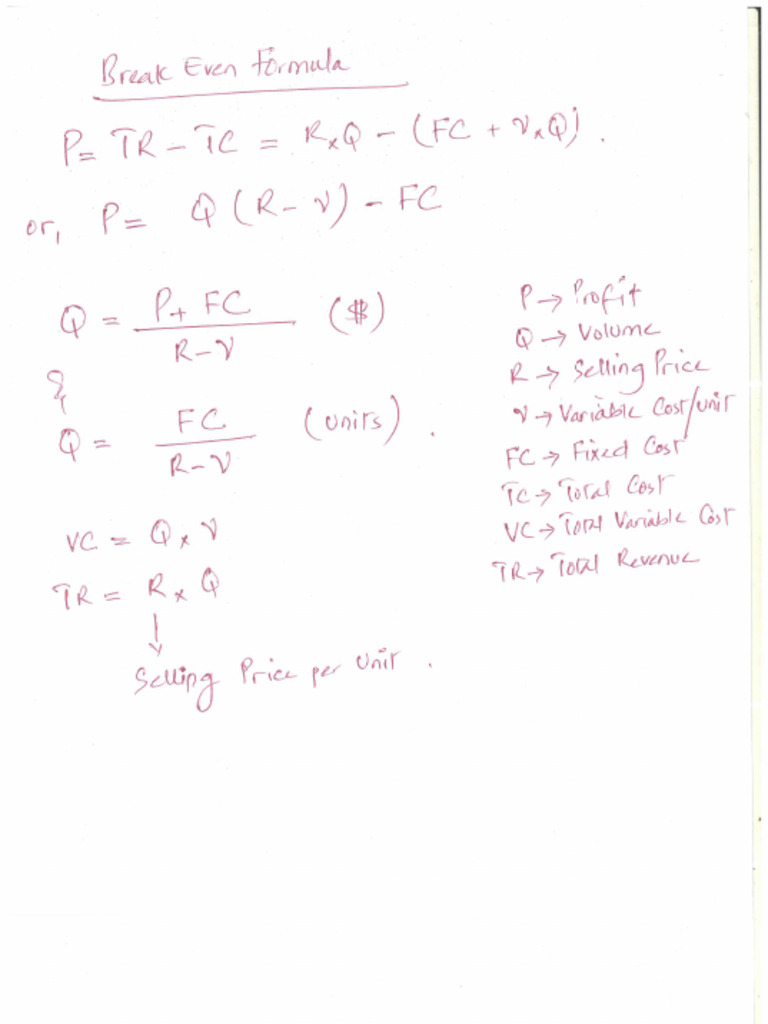 Break Even Formula
P = TR - TC = R x Q - (FC + v x Q).
or, P = Q (R - v) - FC
Q = P + FC / R - v ($)
&
Q = FC / R - v (units).
VC = Q x v
TR = R x Q
↓
Selling Price per Unit.
P → Profit
Q → Volume
R → Selling Price
v → Variable Cost/unit
FC → Fixed Cost
TC → Total Cost
VC → Total Variable Cost
TR → Total Revenue